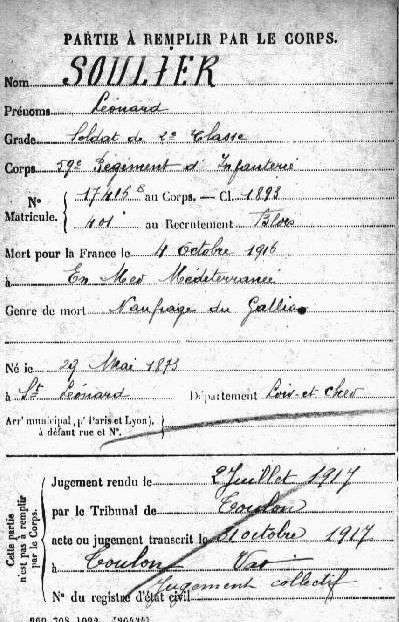 PARTIE À REMPLIR PAR LE CORPS.
Nom SOULIER
Prénoms Léonard
Grade Soldat de 2e Classe
Corps 59e Régiment d'Infanterie
N° Matricule. { 17415 au Corps. — Cl. 1893
401 au Recrutement Blois
Mort pour la France le 4 Octobre 1916
à En Mer Méditerranée
Genre de mort Naufrage du Gallia
Né le 29 Mai 1873
à St Léonard Département Loir-et-Cher
Arrt municipal, (pr Paris et Lyon), à défaut rue et N°.
Cette partie n'est pas à remplir par le Corps.
Jugement rendu le 2 Juillet 1917
par le Tribunal de Toulon
acte ou jugement transcrit le 31 octobre 1917
à Toulon Var
Jugement collectif
N° du registre d'état civil